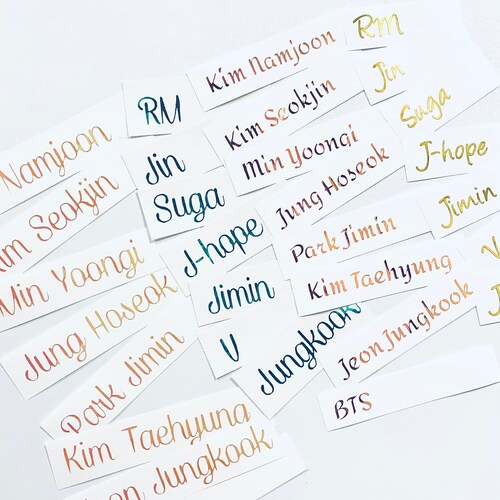 Namjoon
Kim Seokjin
Min Yoongi
Jung Hoseok
Park Jimin
Kim Taehyung
Jungkook
RM
Jin
Suga
J-hope
Jimin
V
Jungkook
Kim Namjoon
Kim Seokjin
Min Yoongi
Jung Hoseok
Park Jimin
Kim Taehyung
Jeon Jungkook
BTS
RM
Jin
Suga
J-hope
Jimin
V
J